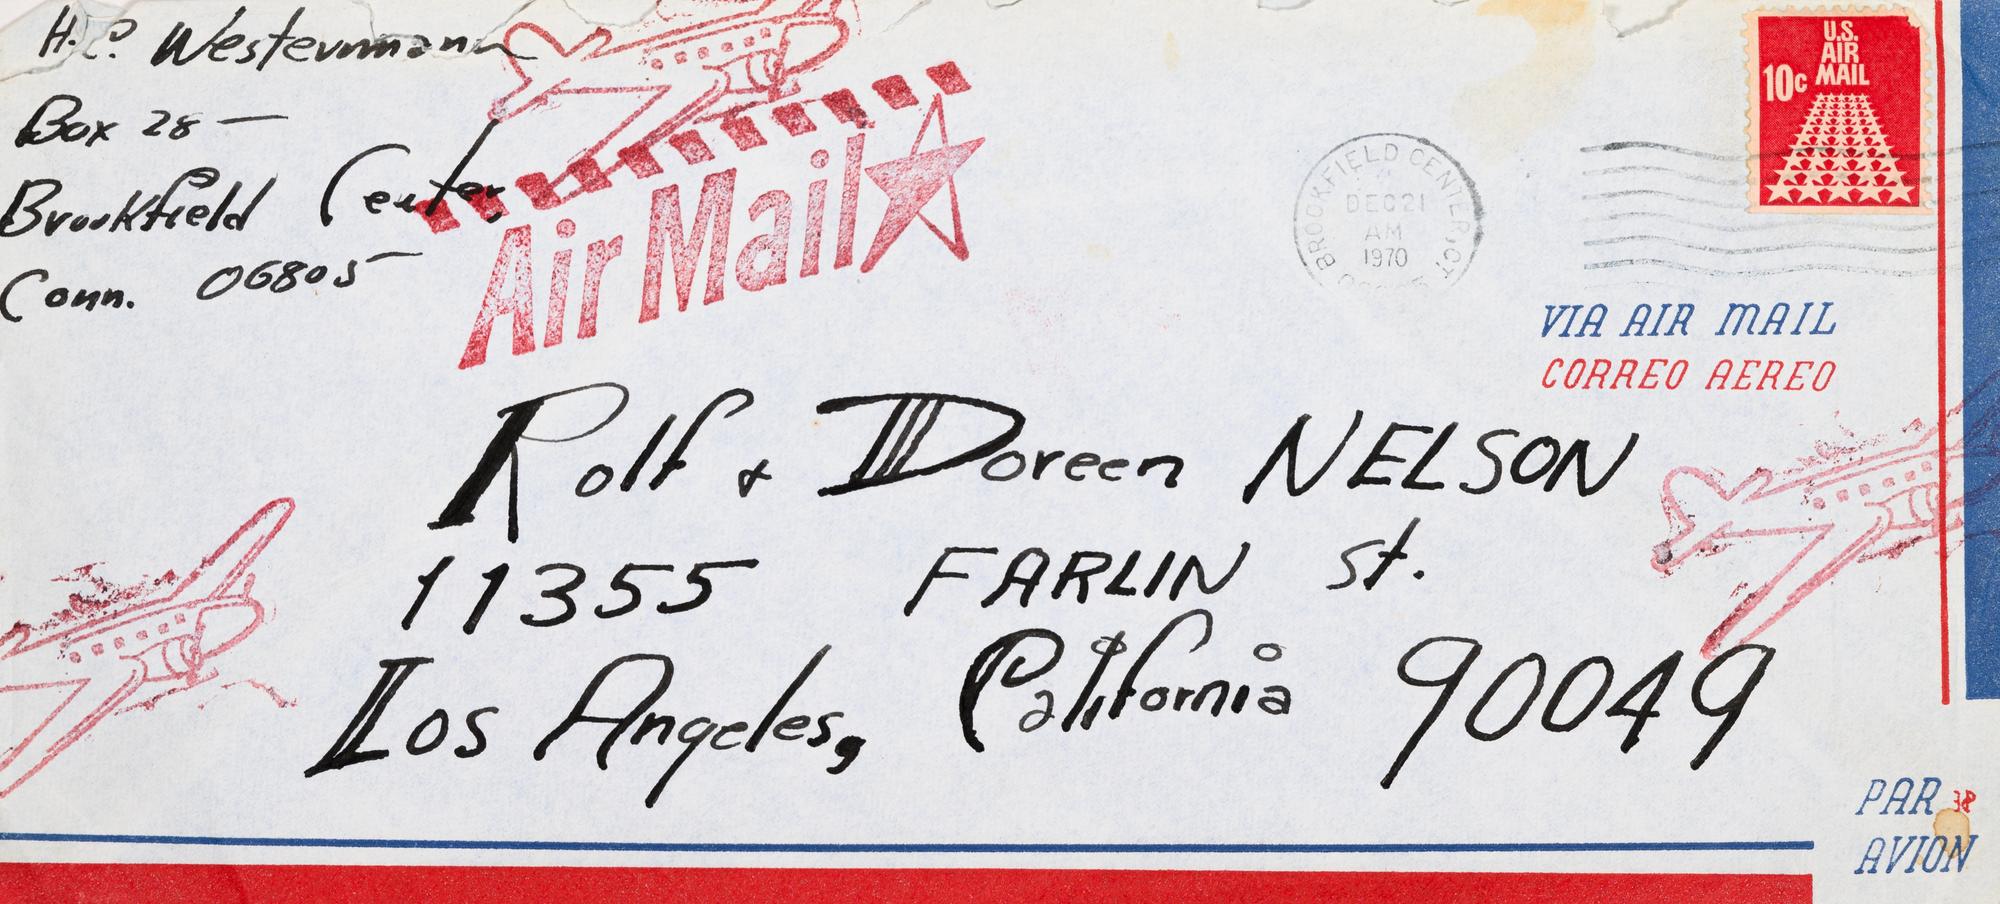 H. C. Westermann
Box 28 —
Brookfield Center,
Conn. 06805
Air Mail
U.S.
AIR
MAIL
10c
BROOKFIELD CENTER, CT.
DEC 21
AM
1970
VIA AIR MAIL
CORREO AEREO
Rolf & Doreen NELSON
11355 FARLIN St.
Los Angeles, California 90049
PAR
AVION
38